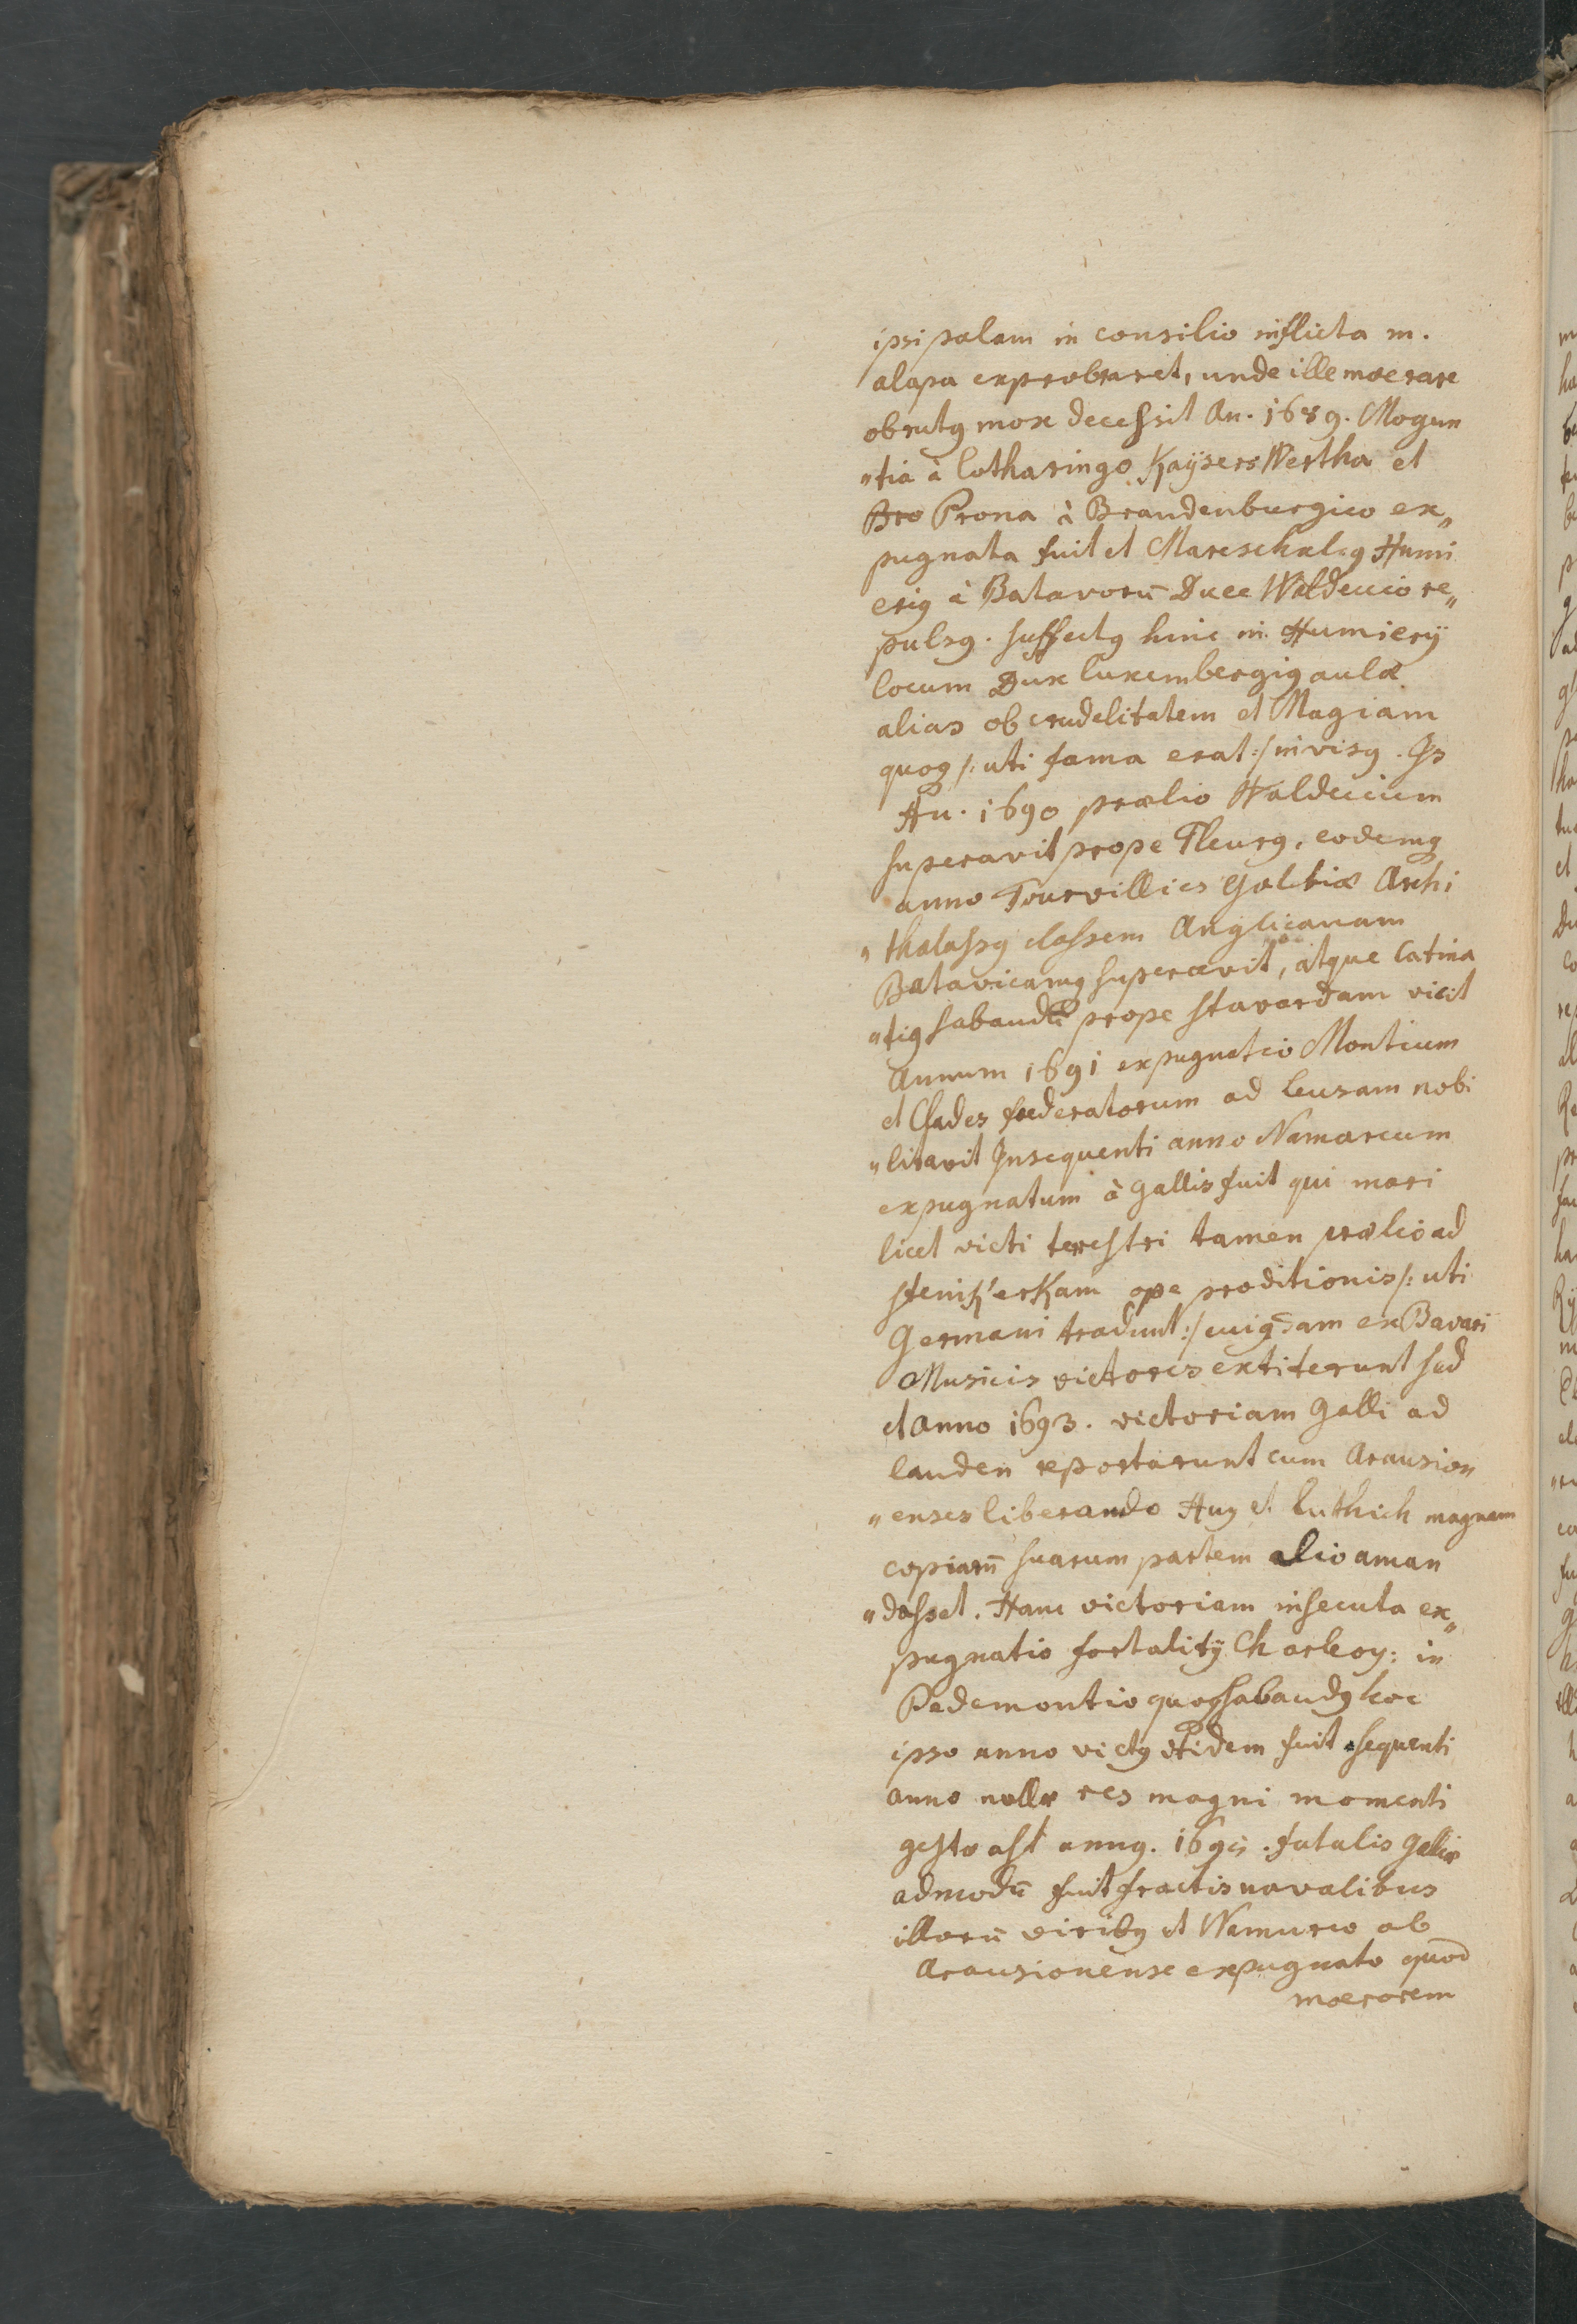 ipsi palam in consilio inflicta m.
alapa exprobraret, unde ille moerore
obrutꝰ mox decessit An. 1689. Mogun
„tia à Lotharingo Kaÿsers Wertha et
Bro Prona à Brandenburgico ex„
pugnata fuit et Mareschalcꝰ Humi
eriꝰ à Batavorū Duce Waldeccio re„
pulsꝰ. suffectꝰ hinc in Humierÿ
locum Dux Luxembergiꝰ aulæ
alias ob crudelitatem et Magiam
quoq /: uti fama erat :/ invisꝰ. Is
An. 1690 prælio Waldeccium
superavit prope Fleurꝰ, eodemq
anno Tourvillies Galliæ Archi
„thalassꝰ classem Anglicanam
Batavicamq superavit, atque Catina
„tiꝰ Sabaudū prope Stavardam vicit
Annum 1691 expugnatio Montium
et Clades fœderatorum ad Leusam nobi
„litavit Insequenti anno Namarcum
expugnatum à Gallis fuit qui mari
licet victi terrestri tamen prælio ad
Stenikerkam ope proditionis /: uti
Germani tradunt :/ cuiꝰdam ex Bavari
Musicis victores extiterunt sed
et Anno 1693. victoriam Galli ad
Landen reportarunt cum Arausion
„enses liberando Huy et Luthich magnam
copiarū suarum partem alio aman
„dasset. Hanc victoriam insecuta ex„
pugnatio fortalitÿ Charleoy: in
Pedemontio quoq Sabaudꝰ hoc
ipso anno victꝰ itidem fuit sequenti
anno nullæ res magni momenti
gestæ ast annꝰ. 1695. fatalis Galliæ
admodū fuit fractis navalibus
illorū viribꝰ et Namurco ab
Arausionense expugnato quod
moerorem